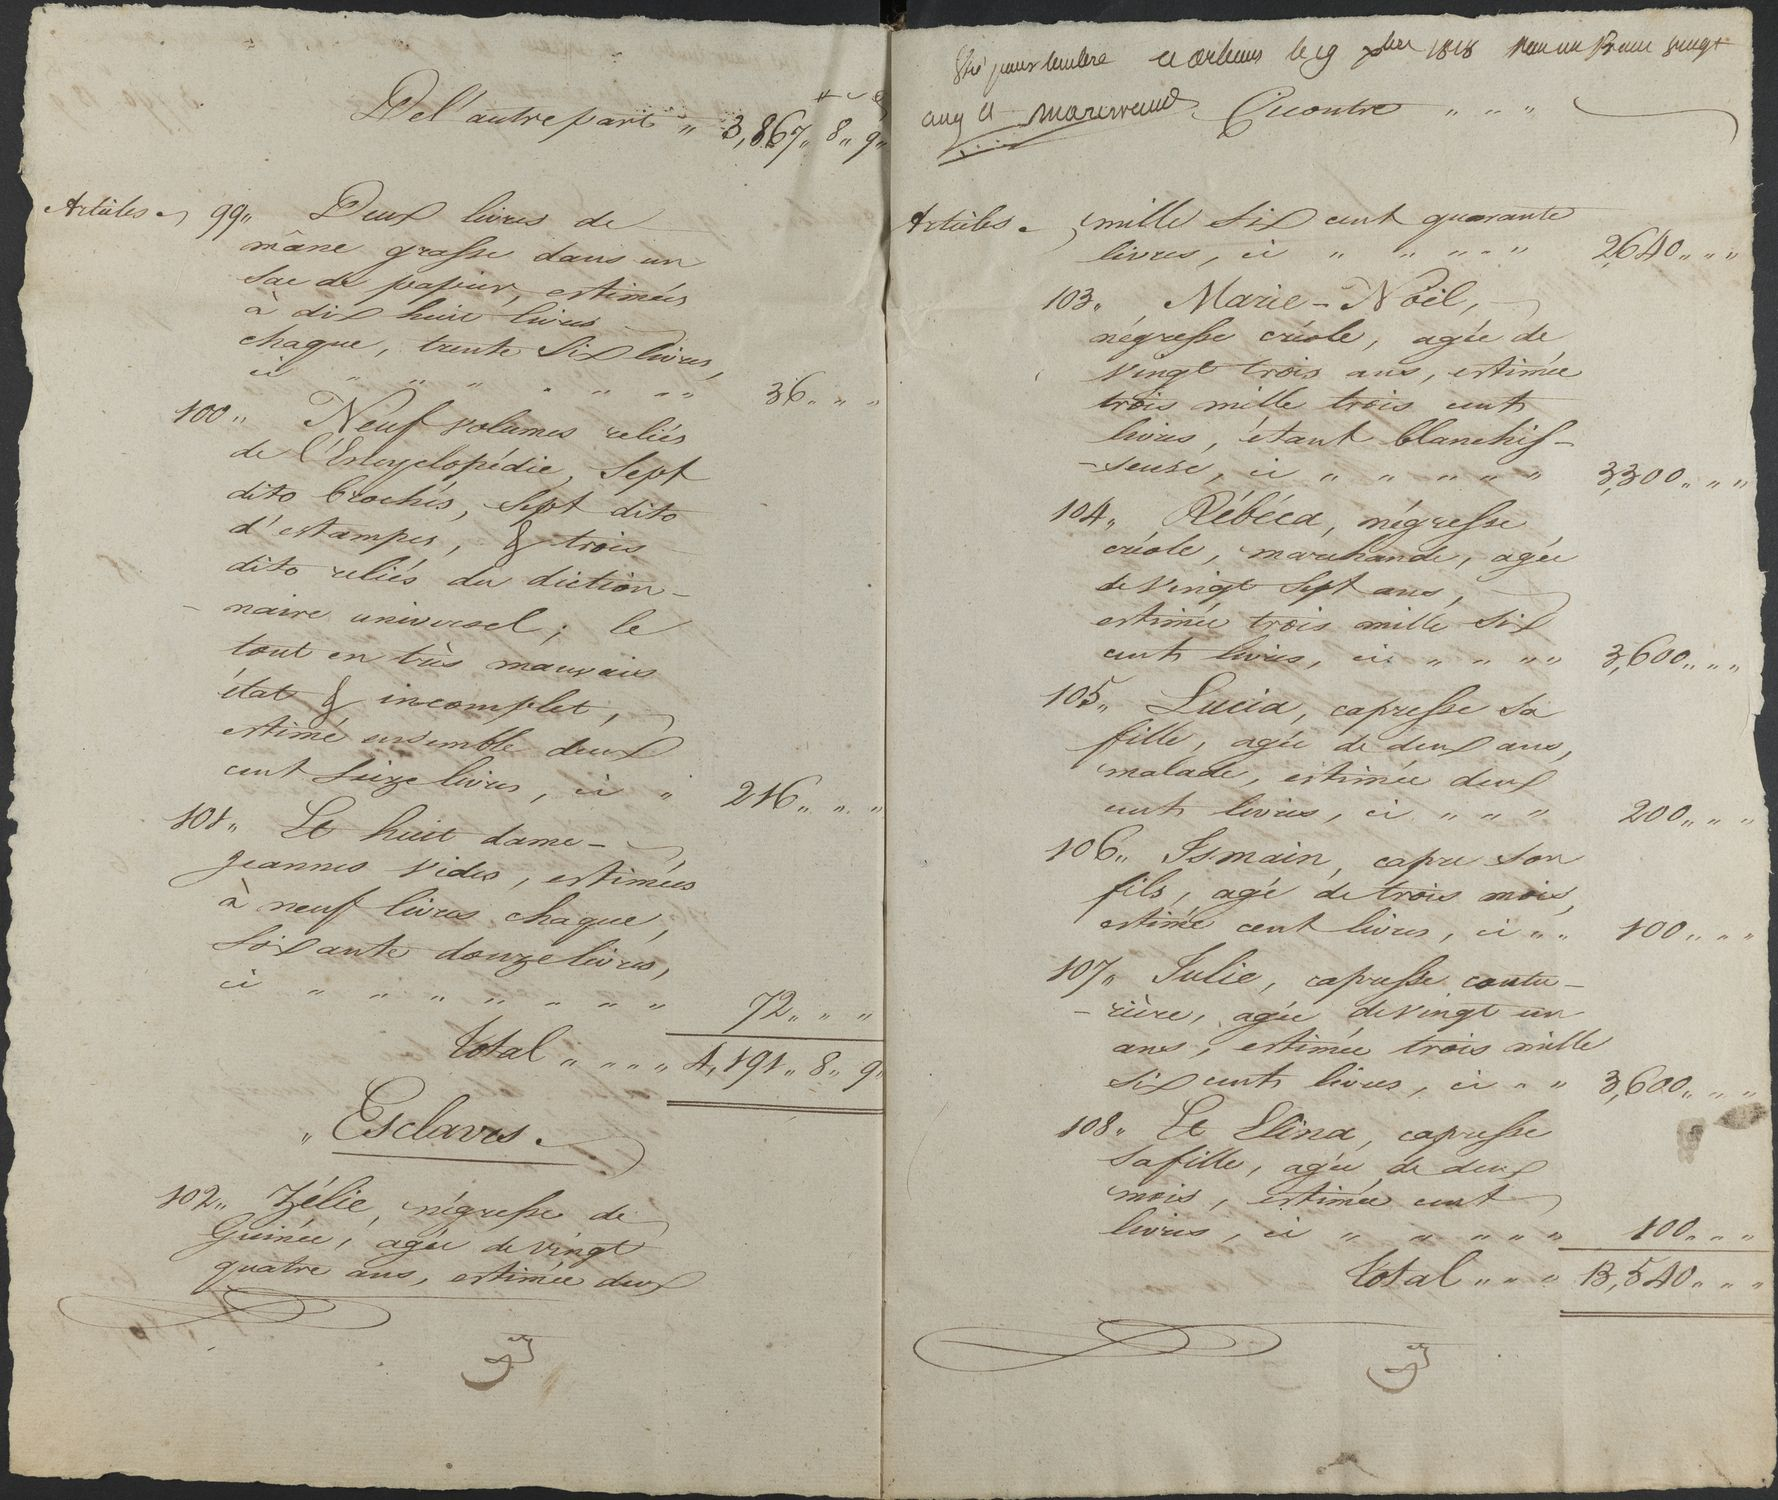 De l'autre part „ 3,867„ 8„ 9„
Articles. 99„ Deux livres de
mâne grasse dans un
sac de papier, estimées
à dix huit livres
chaque, trente six livres,
ci „ „ „ „ „ „ „ 36„ „ „
100„ Neuf volumes reliés
de l'Encyclopédie, sept
dito brochés, sept dito
d'estampes, & trois
dito reliés du diction-
-naire universel; le
tout en très mauvais
état & incomplet,
estimé ensemble deux
cent seize livres, ci „ 216„ „ „
101„ Et huit dame-
jeannes vides, estimées
à neuf livres chaque,
soixante douze livres,
ci „ „ „ „ „ „ „ 72„ „ „
Total „ „ „ „ 4,191„ 8„ 9„
„ Esclaves.
102„ Zélie, négresse de
Guinée, agée de vingt
quatre ans, estimée deux
Visé pour timbre a orleans le 19 1818
Cicontre „ „ „
Articles. mille six cent quarante
livres, ci „ „ „ „ „ 2,640„ „ „
103„ Marie-Noël,
négresse créole, agée de
vingt trois ans, estimée
trois mille trois cents
livres, étant blanchis-
-seuse, ci „ „ „ „ „ 3,300„ „ „
104„ Rébéca, négresse
créole, marchande, agée
de vingt sept ans,
estimée trois mille six
cents livres, ci „ „ „ „ 3,600„ „ „
105„ Lucia, capresse sa
fille, agée de deux ans,
malade, estimée deux
cents livres, ci „ „ „ 200„ „ „
106„ Ismain, capre son
fils, agé de trois mois,
estimé cent livres, ci „ „ 100„ „ „
107„ Julie, capresse coutu-
-rière, agée de vingt un
ans, estimée trois mille
six cents livres, ci „ „ 3,600„ „ „
108„ Et Elina, capresse
sa fille, agée de deux
mois, estimée cent
livres, ci „ „ „ „ „ 100„ „ „
Total „ „ „ 13,540„ „ „